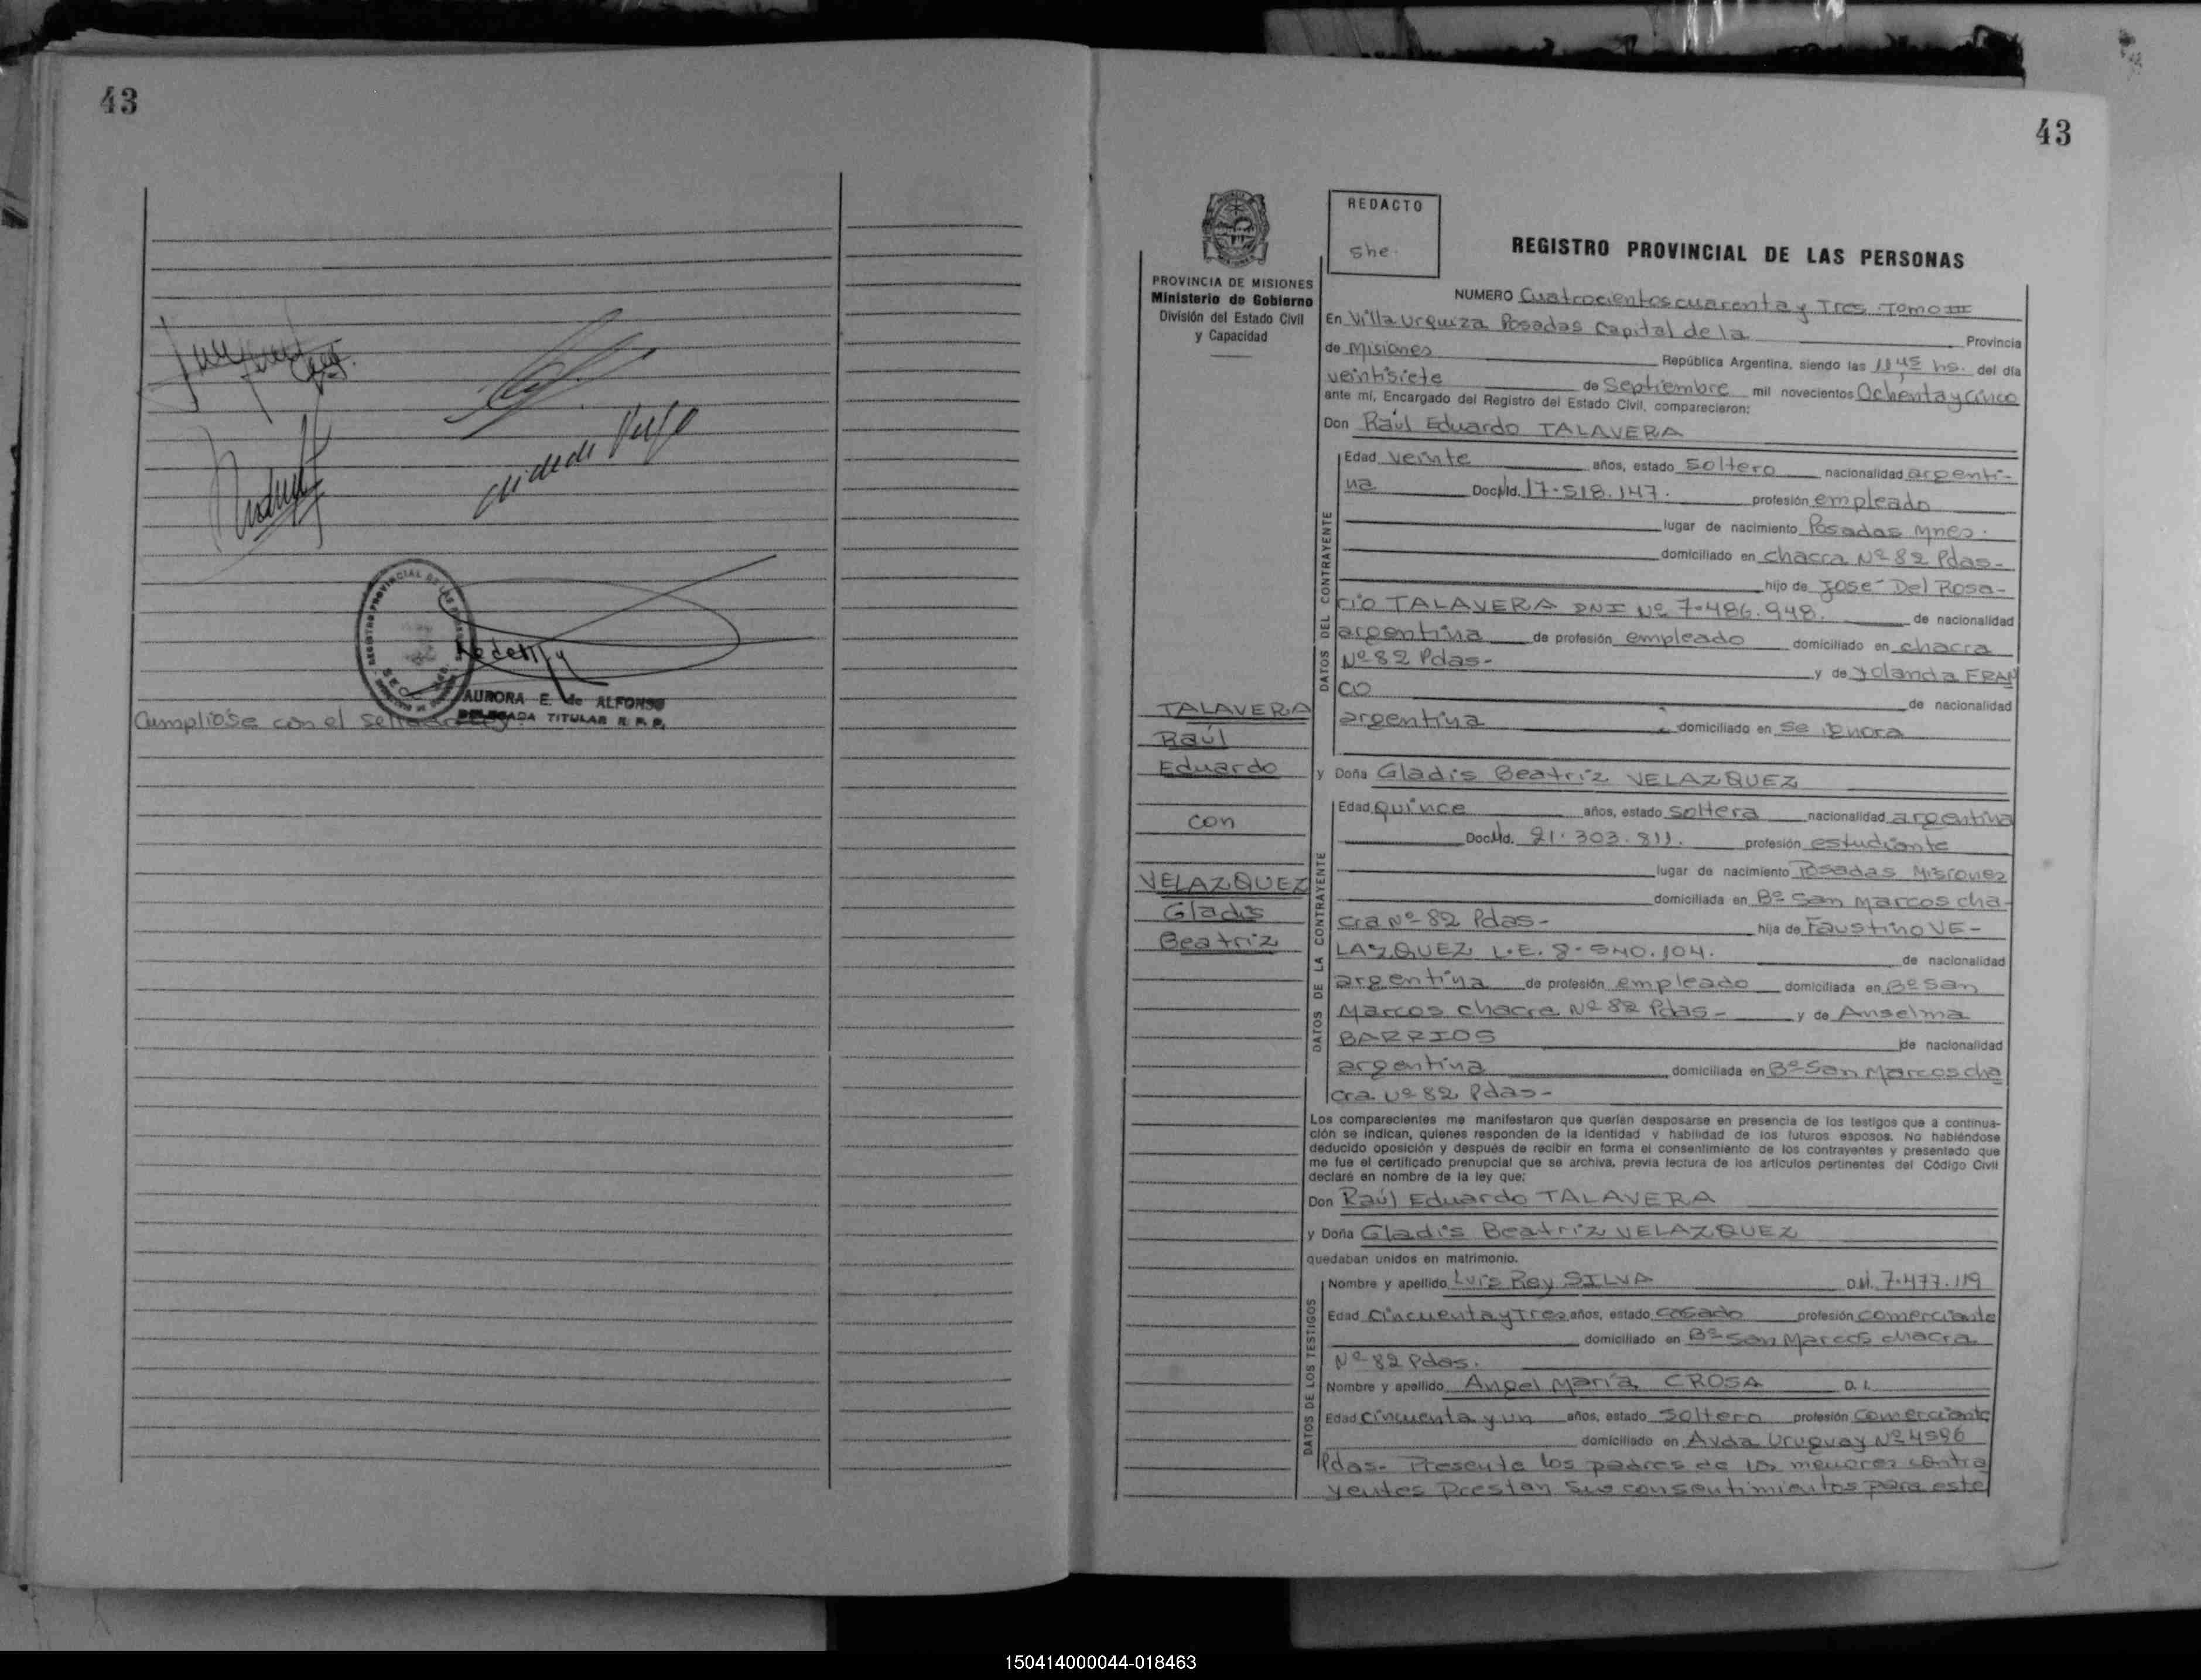 43
REGISTRO PROVINCIAL DE LAS PERSONAS
AURORA E. de ALFONSO
DELEGADA TITULAR R. P. P.
Cumpliose con el
43
PROVINCIA DE MISIONES
Ministerio de Gobierno
División del Estado Civil
y Capacidad
REDACTO
she.
REGISTRO PROVINCIAL DE LAS PERSONAS
NUMERO Cuatrocientos cuarenta y Tres. Tomo III
En Villa Urquiza Posadas Capital de la Provincia
de Misiones República Argentina, siendo las 11,45 hs. del día
veintisiete de Septiembre mil novecientos Ochenta y cinco
ante mí, Encargado del Registro del Estado Civil, comparecieron:
Don Raúl Eduardo TALAVERA
DATOS DEL CONTRAYENTE
Edad veinte años, estado soltero nacionalidad argenti-
na Doc. Nd. 17.518.147. profesión empleado
lugar de nacimiento Posadas Mnes.
domiciliado en chacra Nº 82 Pdas-
hijo de José Del Rosa-
rio TALAVERA DNI Nº 7.486.948. de nacionalidad
argentina de profesión empleado domiciliado en chacra
Nº 82 Pdas- y de Yolanda FRAN
CO de nacionalidad
argentina domiciliado en se ignora
TALAVERA
Raúl
Eduardo
con
VELAZQUEZ
Gladis
Beatriz
y Doña Gladis Beatriz VELAZQUEZ
DATOS DE LA CONTRAYENTE
Edad quince años, estado soltera nacionalidad argentina
Doc. Nd. 21.303.811. profesión estudiante
lugar de nacimiento Posadas Misiones
domiciliada en Bº San Marcos cha-
cra Nº 82 Pdas- hija de Faustino VE-
LAZQUEZ L.E. 8.540.104. de nacionalidad
argentina de profesión empleado domiciliada en Bº San
Marcos chacra Nº 82 Pdas- y de Anselma
BARRIOS de nacionalidad
argentina domiciliada en Bº San Marcos cha
cra Nº 82 Pdas-
Los comparecientes me manifestaron que querían desposarse en presencia de los testigos que a continua-
ción se indican, quienes responden de la identidad y habilidad de los futuros esposos. No habiéndose
deducido oposición y después de recibir en forma el consentimiento de los contrayentes y presentado que
me fue el certificado prenupcial que se archiva, previa lectura de los artículos pertinentes del Código Civil
declaré en nombre de la ley que:
Don Raúl Eduardo TALAVERA
y Doña Gladis Beatriz VELAZQUEZ
quedaban unidos en matrimonio.
DATOS DE LOS TESTIGOS
Nombre y apellido Luis Rey SILVA D.I. 7.477.119
Edad cincuenta y Tres años, estado casado profesión comerciante
domiciliado en Bº San Marcos chacra
Nº 82 Pdas.
Nombre y apellido Angel María CROSA D. I.
Edad cincuenta y un años, estado soltero profesión comerciante
domiciliado en Avda Uruguay Nº 4596
Pdas- Presente los padres de los menores contra
yentes Prestan sus consentimientos para este
150414000044-018463